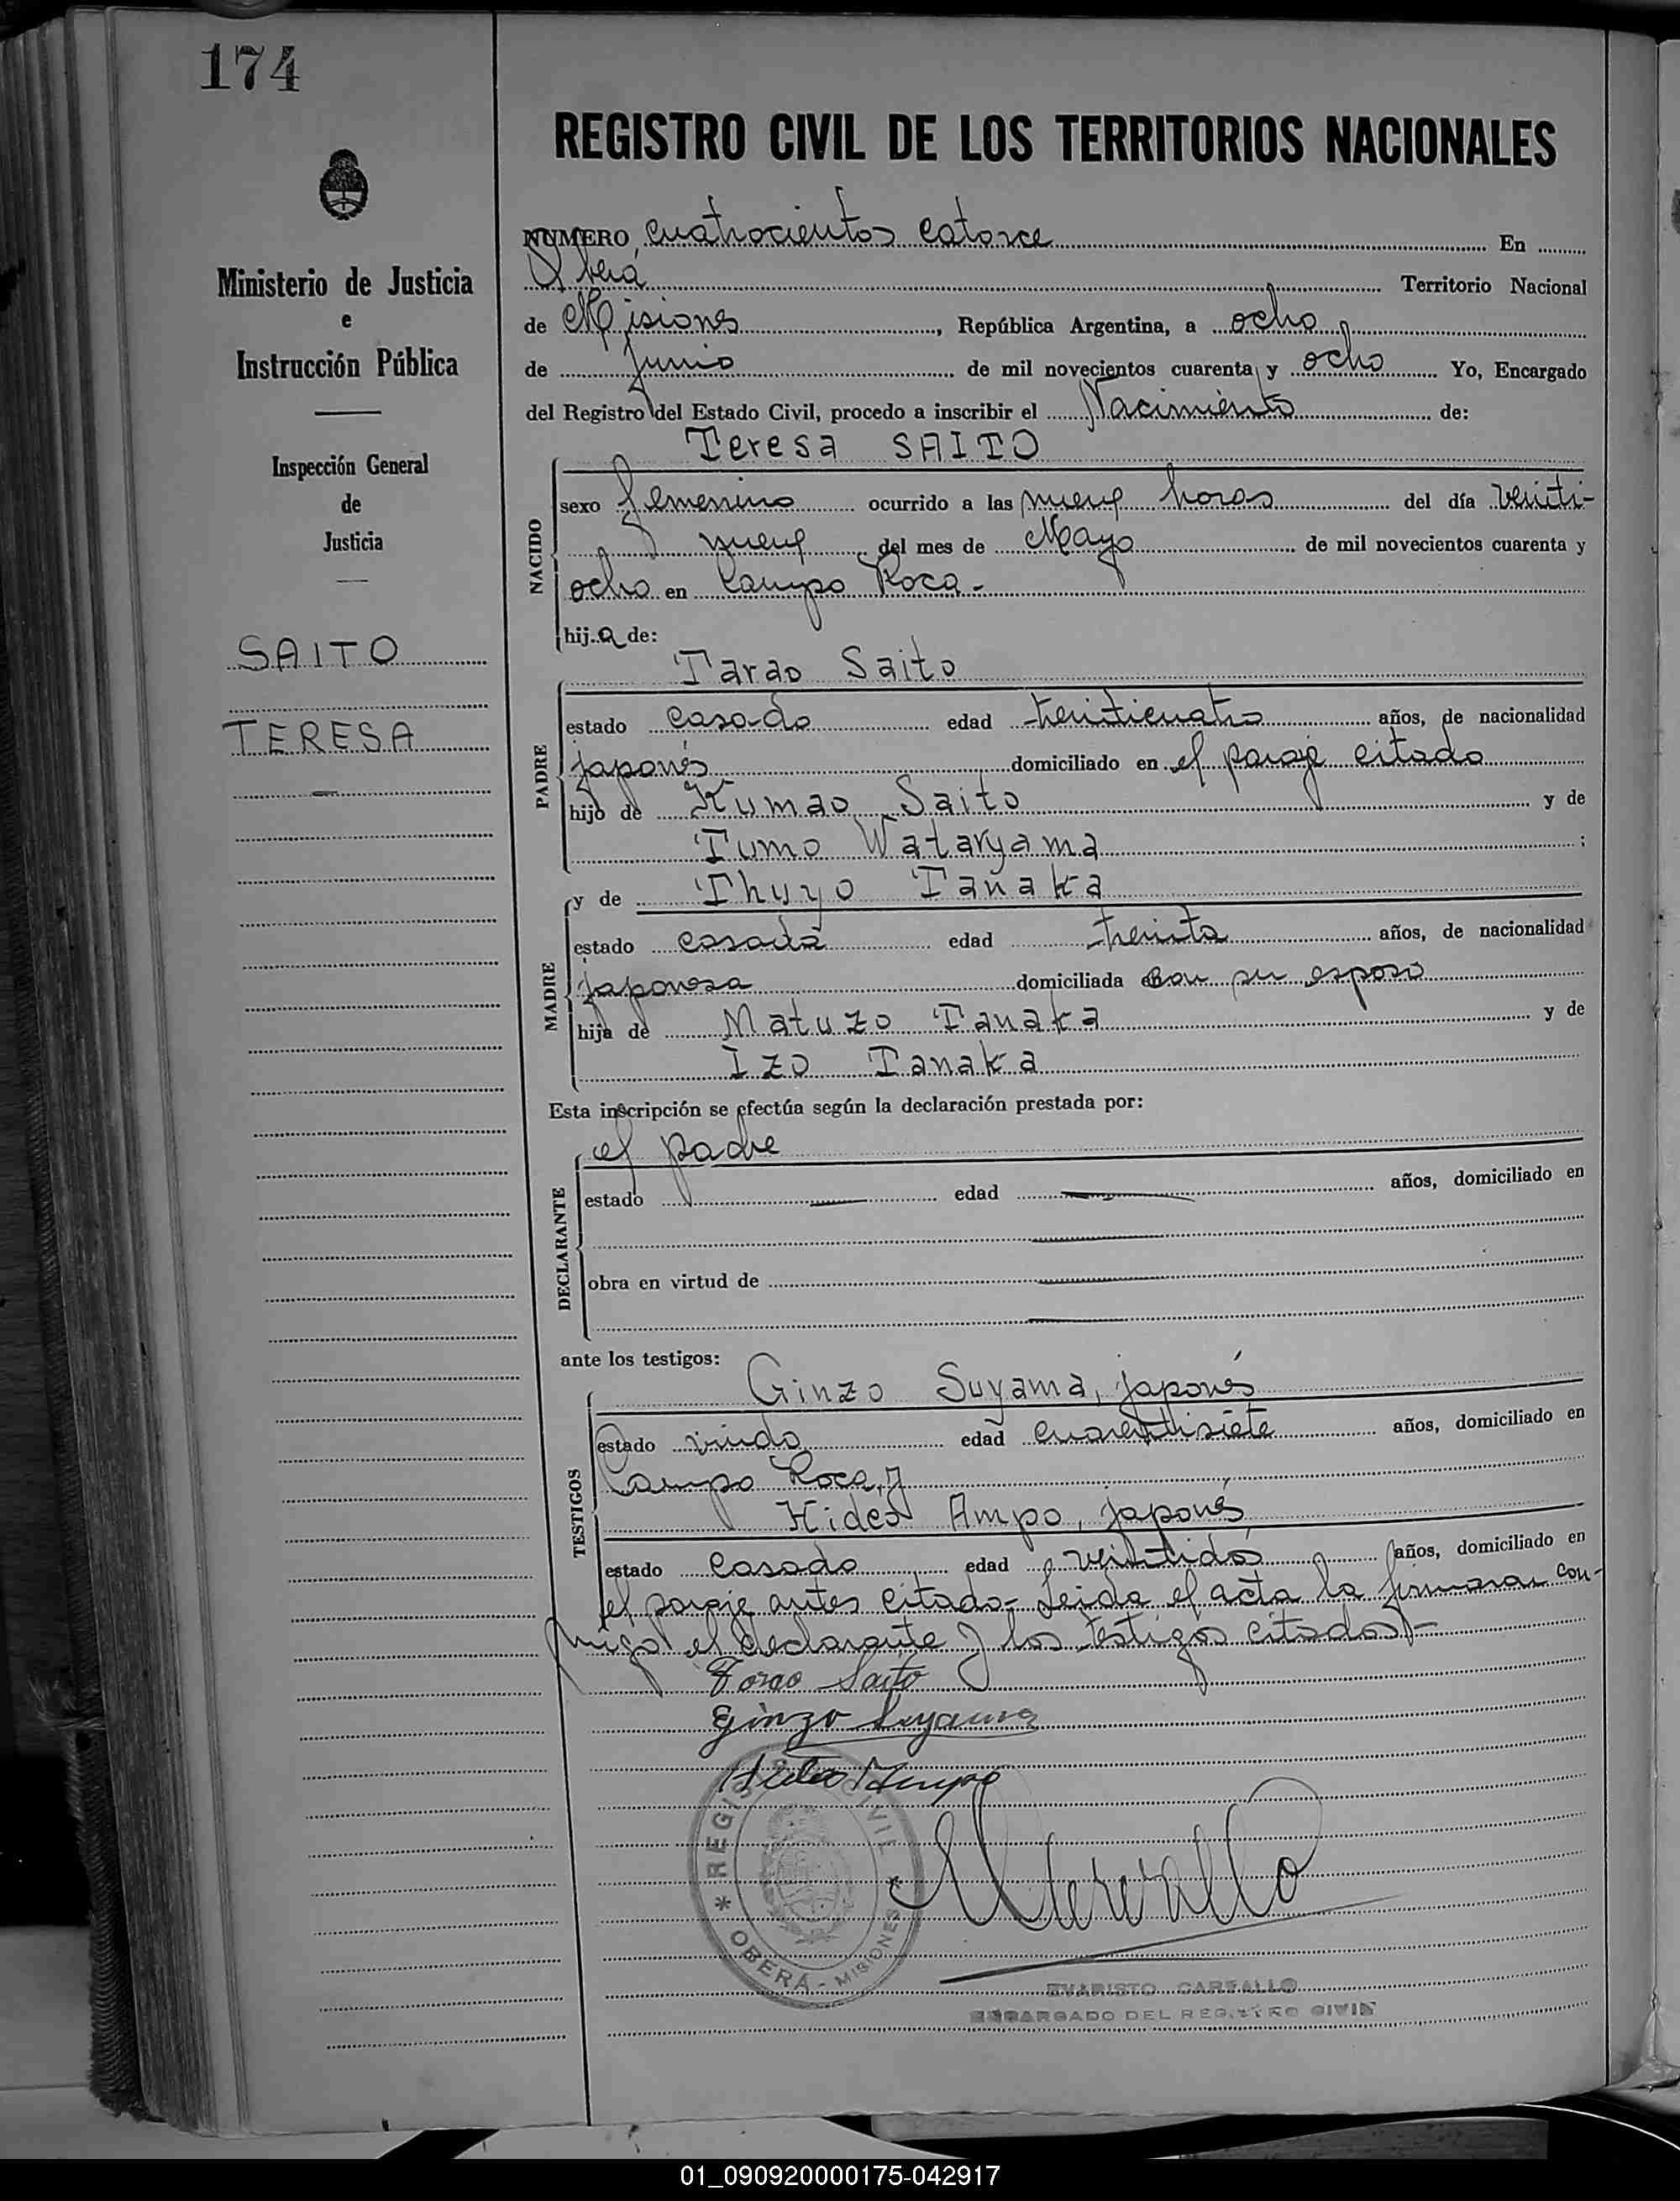 174
REGISTRO CIVIL DE LOS TERRITORIOS NACIONALES
Ministerio de Justicia
e
Instrucción Pública
Inspección General
de
Justicia
SAITO
TERESA
NUMERO cuatrocientos catorce En
Oberá Territorio Nacional
de Misiones, República Argentina, a ocho
de junio de mil novecientos cuarenta y ocho Yo, Encargado
del Registro del Estado Civil, procedo a inscribir el Nacimiento de:
Teresa SAITO
NACIDO
sexo femenino ocurrido a las nueve horas del día veinti-
nueve del mes de Mayo de mil novecientos cuarenta y
ocho en Campo Roca.-
hij a de:
Tarao Saito
PADRE
estado casado edad treinticuatro años, de nacionalidad
japonés domiciliado en el paraje citado
hijo de Kumao Saito y de
Tumo Wataryama;
MADRE
y de Thuyo Tanaka
estado casada edad treinta años, de nacionalidad
japonesa domiciliada con su esposo
hija de Matuzo Tanaka y de
Izo Tanaka
Esta inscripción se efectúa según la declaración prestada por:
DECLARANTE
el padre
estado — edad — años, domiciliado en
—
obra en virtud de —
—
ante los testigos:
TESTIGOS
Ginzo Suyama, japonés
estado viudo edad cuarentisiete años, domiciliado en
Campo Roca, y
Hideo Ampo, japonés
estado casado edad veintidós años, domiciliado en
el paraje antes citado.- Leída el acta la firmaran con-
migo el declarante y los testigos citados.-
Tarao Saito
Ginzo Suyama
Hideo Ampo
REGISTRO CIVIL
OBERÁ - MISIONES
EVARISTO CARVALLO
ENCARGADO DEL REGISTRO CIVIL
01_090920000175-042917